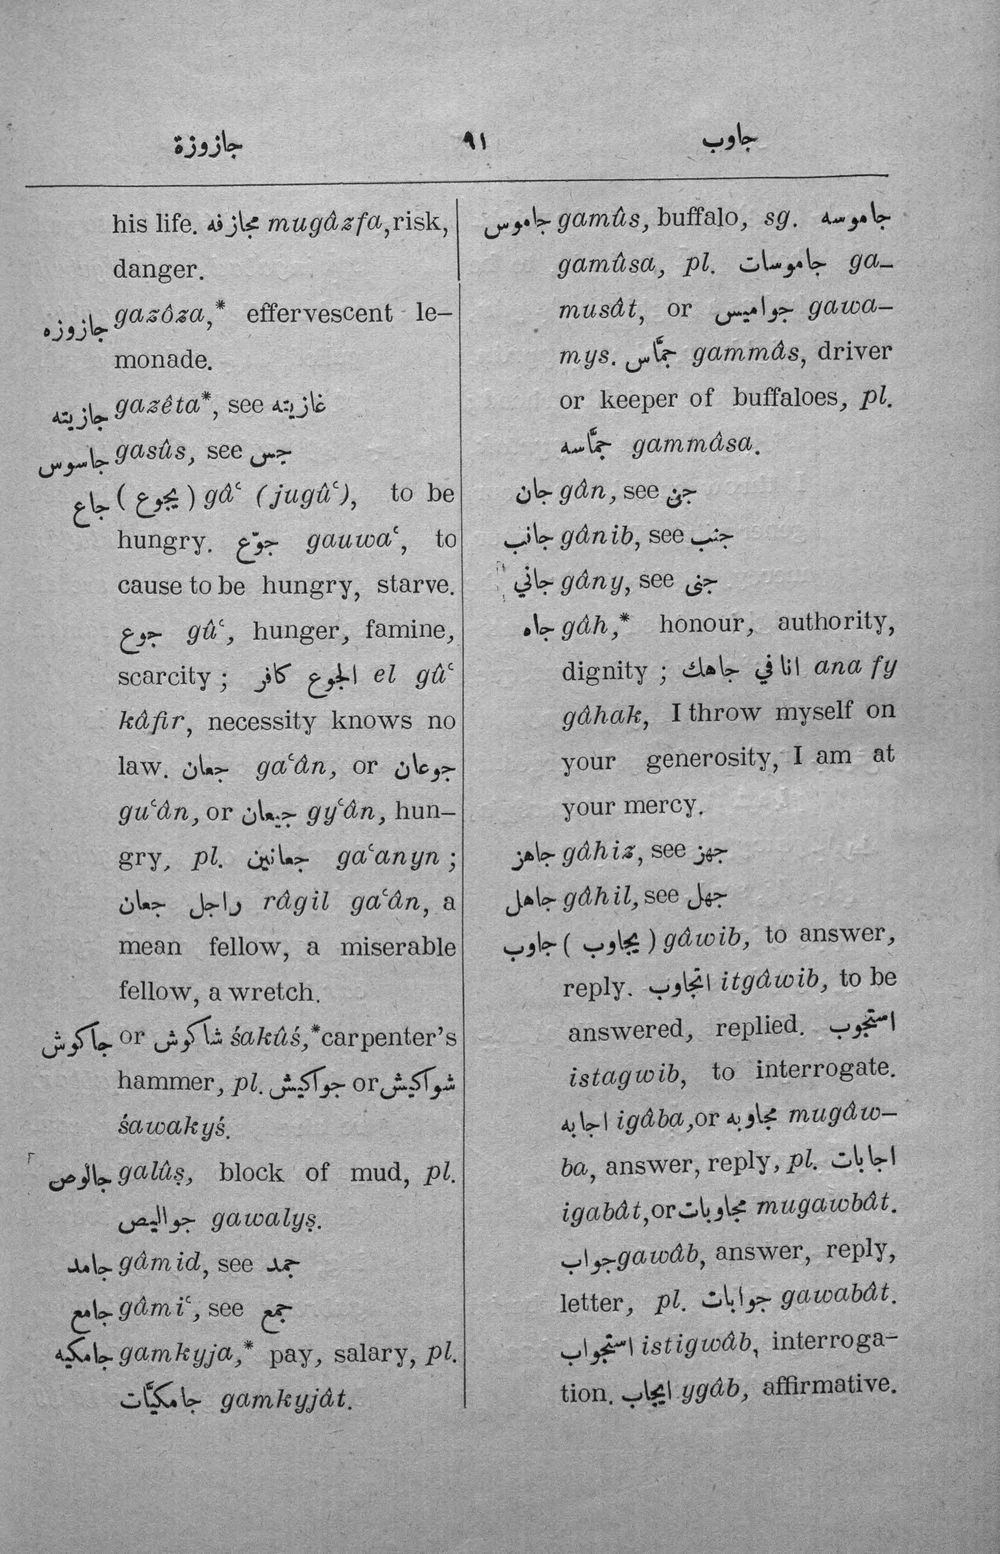 جازوزة ٩١ جاوب
his life. مجازفه mugâzfa, risk,
danger.
جازوزه gazôza,* effervescent le-
monade.
جازيته gazêta*, see غازيته
جاسوس gasûs, see جس
جاع (يجوع) gâʿ (jugûʿ), to be
hungry. جوّع gauwaʿ, to
cause to be hungry, starve.
جوع gûʿ, hunger, famine,
scarcity; الجوع كافر el gûʿ
kâfir, necessity knows no
law. جعان gaʿân, or جوعان
guʿân, or جيعان gyʿân, hun-
gry, pl. جعانين gaʿanyn;
راجل جعان râgil gaʿân, a
mean fellow, a miserable
fellow, a wretch.
جاكوش or شاكوش śakûś,* carpenter's
hammer, pl. جواكيش or شواكيش
śawakyś.
جالوص galûṣ, block of mud, pl.
جواليص gawalyṣ.
جامد gâmid, see جمد
جامع gâmiʿ, see جمع
جامكيه gamkyja,* pay, salary, pl.
جامكيَّات gamkyjât.
جاموس gamûs, buffalo, sg. جاموسه
gamûsa, pl. جاموسات ga-
musât, or جواميس gawa-
mys. جمَّاس gammâs, driver
or keeper of buffaloes, pl.
جمَّاسه gammâsa.
جان gân, see جن
جانب gânib, see جنب
جاني gâny, see جنى
جاه gâh,* honour, authority,
dignity; انا في جاهك ana fy
gâhak, I throw myself on
your generosity, I am at
your mercy.
جاهز gâhiz, see جهز
جاهل gâhil, see جهل
جاوب (يجاوب) gâwib, to answer,
reply. اتجاوب itgâwib, to be
answered, replied. استجوب
istagwib, to interrogate.
اجابه igâba, or مجاوبه mugâw-
ba, answer, reply, pl. اجابات
igabât, or مجاوبات mugawbât.
جواب gawâb, answer, reply,
letter, pl. جوابات gawabât.
استجواب istigwâb, interroga-
tion. ايجاب ygâb, affirmative.